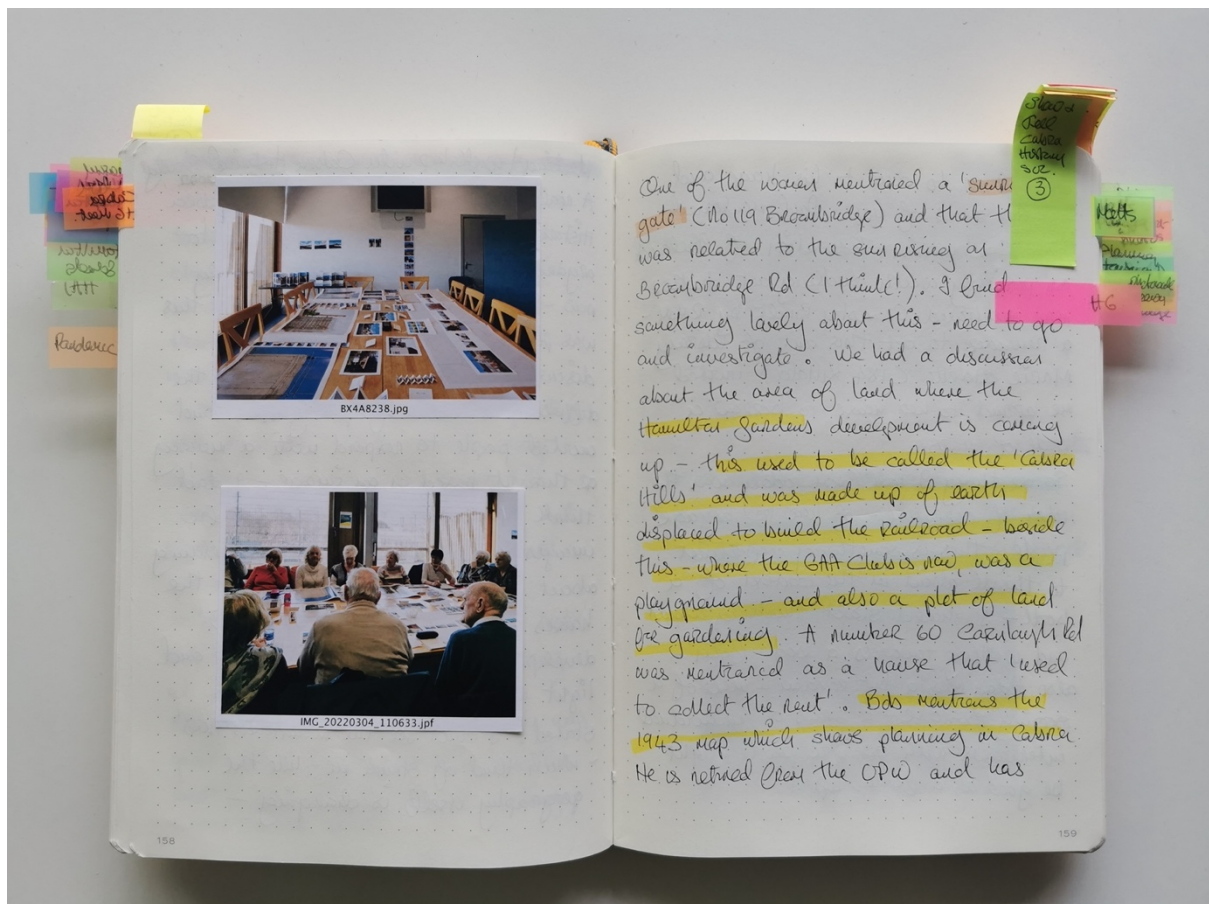 BX4A8238.jpg
IMG_20220304_110633.jpf
158
Pandemic
One of the women mentioned a 'sunrise
gate' (No 119 Broombridge) and that
was related to the sun rising on
Broombridge Rd (I think!). I find
something lovely about this - need to go
and investigate. We had a discussion
about the area of land where the
Hamilton Gardens development is coming
up - this used to be called the 'Cabra
Hills' and was made up of earth
displaced to build the railroad - beside
this - where the GAA Club is now, was a
playground - and also a plot of land
for gardening. A number 60 Carnlough Rd
was mentioned as a house that 'used
to collect the rent'. Bob mentions the
1943 map which shows planning in Cabra.
He is retired from the OPW and has
159
Cabra
History
Soc.
3
H6